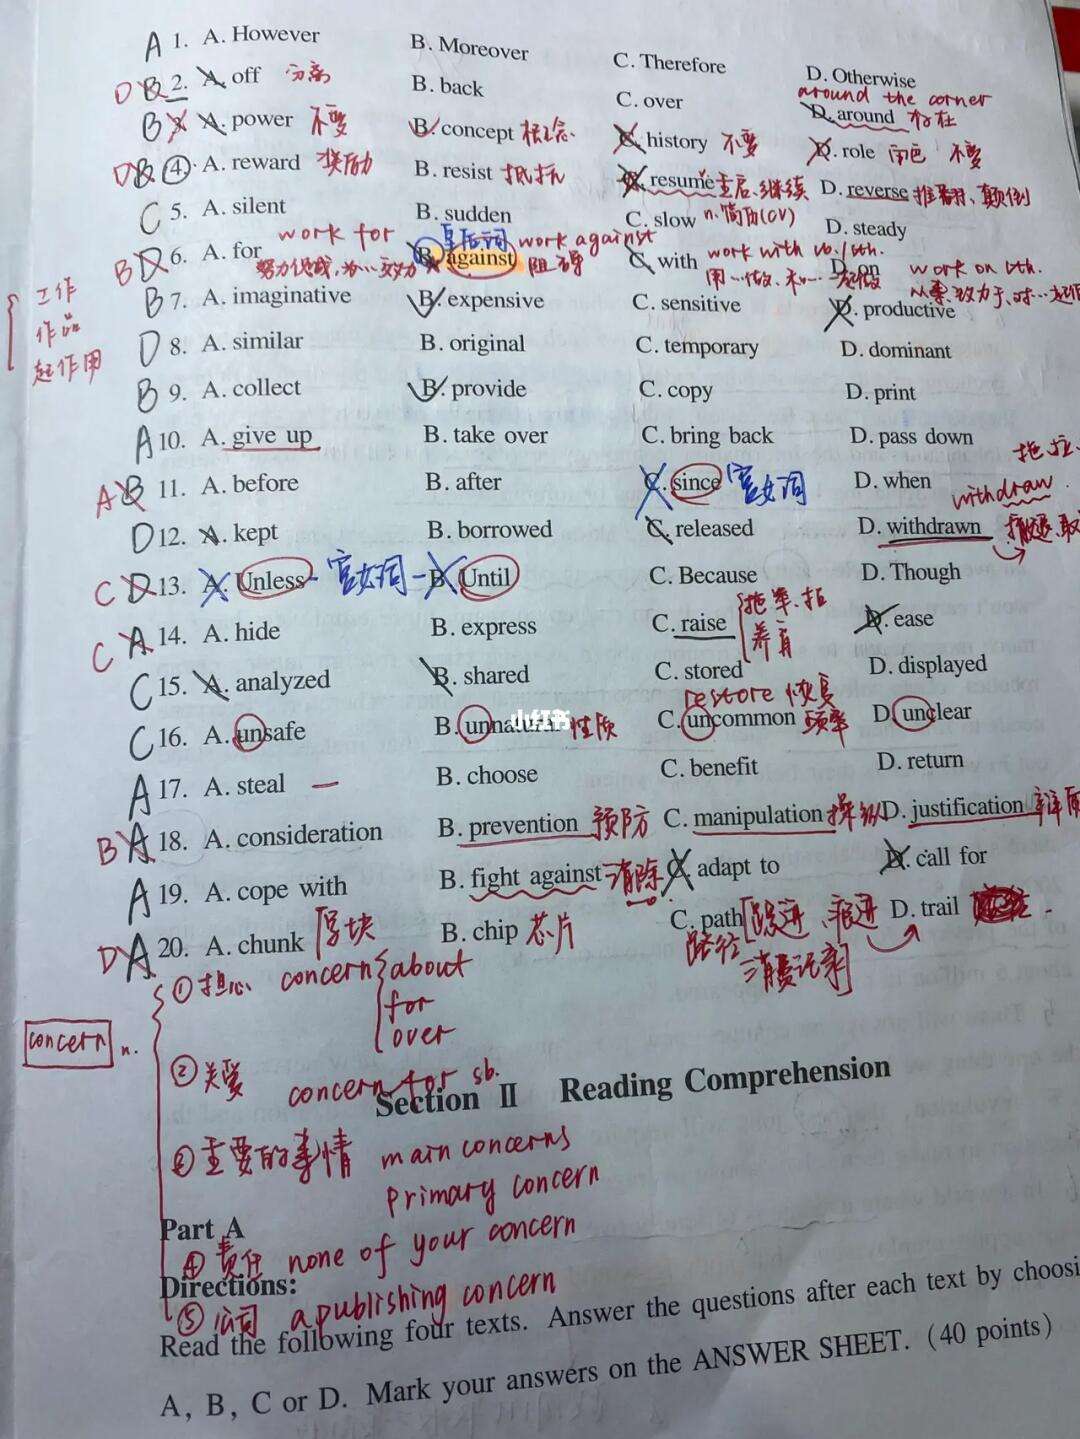 A 1. A. However B. Moreover C. Therefore D. Otherwise
around the corner
D B 2. A. off 分离 B. back C. over D. around 存在
B A. power 不变 B. concept 概念 C. history 不变 D. role 角色 不变
D B ④. A. reward 奖励 B. resist 抵抗 C. resume 重启、继续 D. reverse 推翻、颠倒
n.简历(CV)
C 5. A. silent B. sudden C. slow D. steady
work for 皇后词 work against work with sb./sth. work on sth.
B D 6. A. for B. against 阻碍 C. with D. on
B 7. A. imaginative B. expensive C. sensitive D. productive
工作
作品
起作用
D 8. A. similar B. original C. temporary D. dominant
B 9. A. collect B. provide C. copy D. print
A 10. A. give up B. take over C. bring back D. pass down
A B 11. A. before B. after C. since 宫女词 D. when
withdraw
D 12. A. kept B. borrowed C. released D. withdrawn
C D 13. A. Unless - 宫女词 - B. Until C. Because D. Though
C A 14. A. hide B. express C. raise D. ease
养育
C 15. A. analyzed B. shared C. stored D. displayed
restore 恢复
C 16. A. unsafe B. unnatural 性质 C. uncommon 频率 D. unclear
小红书
A 17. A. steal B. choose C. benefit D. return
B A 18. A. consideration B. prevention 预防 C. manipulation 操纵 D. justification
A 19. A. cope with B. fight against 消除 C. adapt to D. call for
D A 20. A. chunk 厚块 B. chip 芯片 C. path D. trail
路径
concern n.
①担心 concern about
for
over
②关爱 concern for sb.
Section Ⅱ Reading Comprehension
③重要的事情 main concerns
primary concern
Part A
④责任 none of your concern
Directions:
⑤公司 a publishing concern
Read the following four texts. Answer the questions after each text by choosi
A, B, C or D. Mark your answers on the ANSWER SHEET. (40 points)